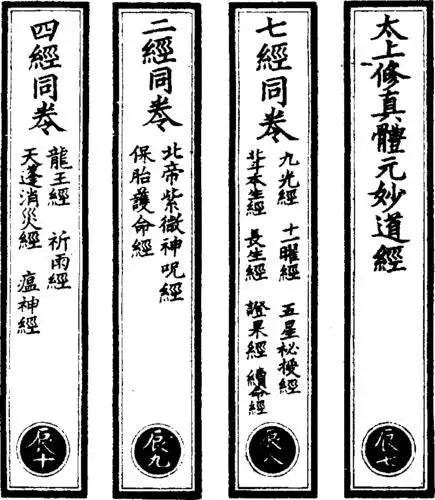 太上修真體元妙道經
辰七
七經同卷
九光經 十一曜經 五星祕授經
北斗本生經 長生經 證果經 續命經
辰八
二經同卷
北帝紫微神呪經
保胎護命經
辰九
四經同卷
龍王經 祈雨經
天蓬消災經 瘟神經
辰十